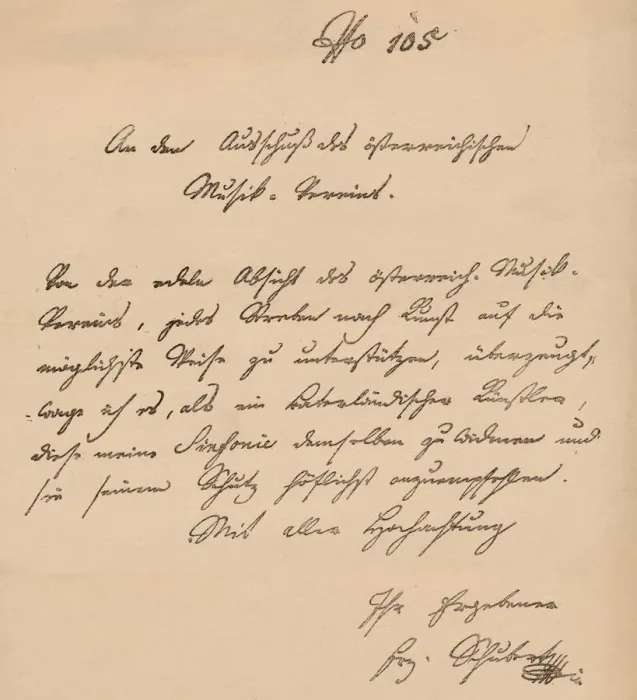 No 105
An den Ausschuß des österreichischen
Musik-Vereins.
Von der edeln Absicht des österreich. Musik-
Vereins, jedes Streben nach Kunst auf die
möglichste Weise zu unterstützen, überzeugt,
wage ich es, als ein vaterländischer Künstler,
diese meine Sinfonie demselben zu widmen und
sie seinem Schutz höflichst anzuempfehlen.
Mit aller Hochachtung
Ihr Ergebener
Frz. Schubert